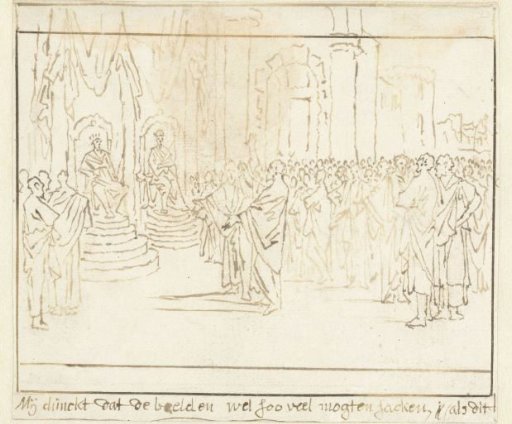 Mij dunckt dat de beelden wel soo veel mogten sacken, als dit